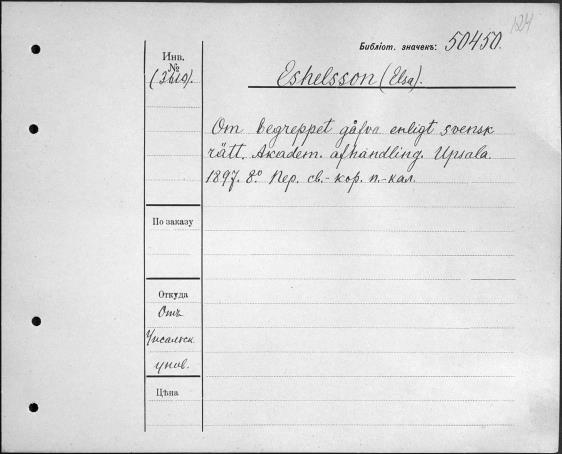 124
Библіот. значекъ: 50450.
Инв. №
(3610).
Eshelsson (Elsa).
Om begreppet gåfva enligt svensk
rätt. Akadem. afhandling. Upsala.
1897. 8° Пер. св.-кор. п.-кал.
По заказу
Откуда
Отъ
Упсальск
унив.
Цѣна